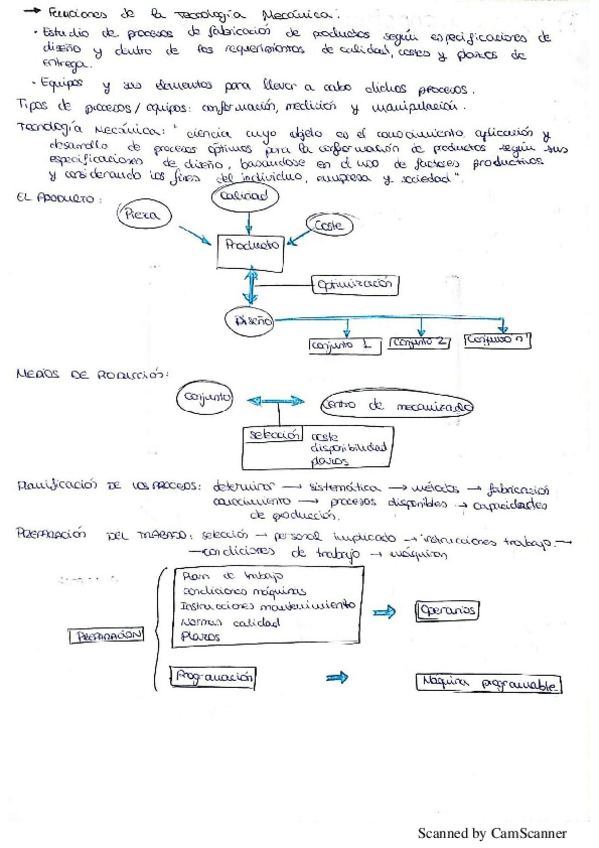 → Funciones de la Tecnología Mecánica:
· Estudio de procesos de fabricación de productos según especificaciones de
diseño y dentro de los requerimientos de calidad, costes y plazos de
entrega.
· Equipos y sus elementos para llevar a cabo dichos procesos.
Tipos de procesos/equipos: conformación, medición y manipulación.
Tecnología Mecánica: "ciencia cuyo objeto es el conocimiento, aplicación y
desarrollo de procesos óptimos para la conformación de productos según sus
especificaciones de diseño, basándose en el uso de factores productivos
y considerando los fines del individuo, empresa y sociedad".
EL PRODUCTO:
Calidad
Pieza
Coste
Producto
Optimización
Diseño
Conjunto 1
Conjunto 2
Conjunto n
MEDIOS DE PRODUCCIÓN:
Conjunto
Centro de mecanizado
Selección
coste
disponibilidad
plazos
PLANIFICACIÓN DE LOS PROCESOS: determinar → sistemática → métodos → fabricación
conocimiento → procesos disponibles → capacidades
de producción.
PREPARACIÓN DEL TRABAJO: selección → personal implicado → instrucciones trabajo →
→ condiciones de trabajo → máquinas
Plan de trabajo
Condiciones máquinas
Instrucciones mantenimiento
Normas calidad
Plazos
Operarios
PREPARACIÓN
Programación
Máquina programable
Scanned by CamScanner